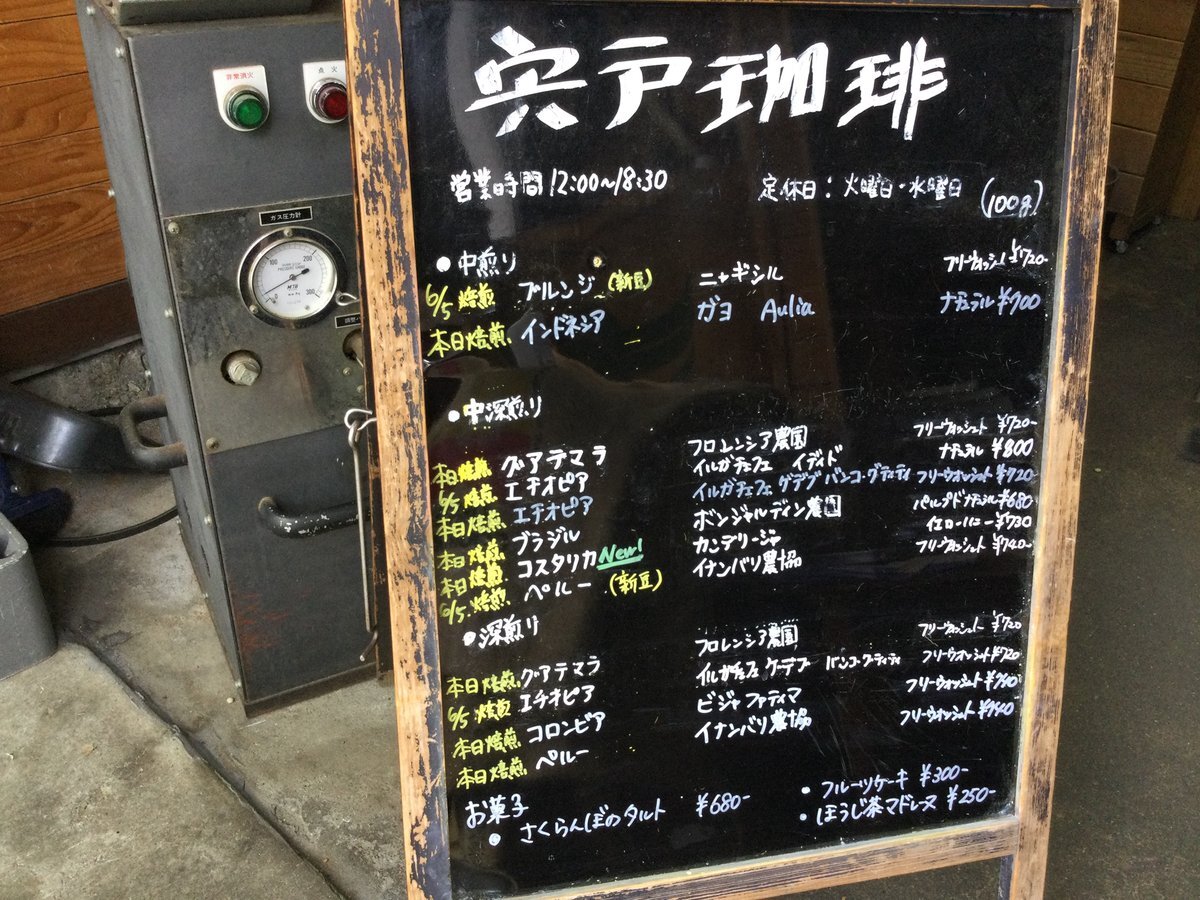 非常消火
点火
ガス圧力計
宍戸珈琲
営業時間 12:00~18:30 定休日:火曜日・水曜日 (100g)
●中煎り
6/5 焙煎 ブルンジ (新豆) ニャギシル フリーウォッシュト ¥720-
本日焙煎 インドネシア ガヨ Aulia ナチュラル ¥700
●中深煎り
本日焙煎 グアテマラ フロレンシア農園 フリーウォッシュト ¥720-
6/5焙煎 エチオピア イルガチェフェ イディド ナチュラル ¥800
本日焙煎 エチオピア イルガチェフェ ゲデブ バンコ・グティティ フリーウォッシュト ¥720
本日焙煎 ブラジル ボンジャルディン農園 パルプドナチュラル ¥680
本日焙煎 コスタリカ New! カンデリージャ イエローハニー ¥730
6/5.焙煎 ペルー (新豆) イナンバリ農協 フリーウォッシュト ¥740-
●深煎り
本日焙煎 グアテマラ フロレンシア農園 フリーウォッシュト ¥720
6/5焙煎 エチオピア イルガチェフェ ゲデブ バンコ・グティティ フリーウォッシュト ¥720
本日焙煎 コロンビア ビジャファティマ フリーウォッシュト
本日焙煎 ペルー イナンバリ農協 フリーウォッシュト ¥740-
お菓子
●さくらんぼのタルト ¥680-
●フルーツケーキ ¥300-
●ほうじ茶マドレーヌ ¥250-